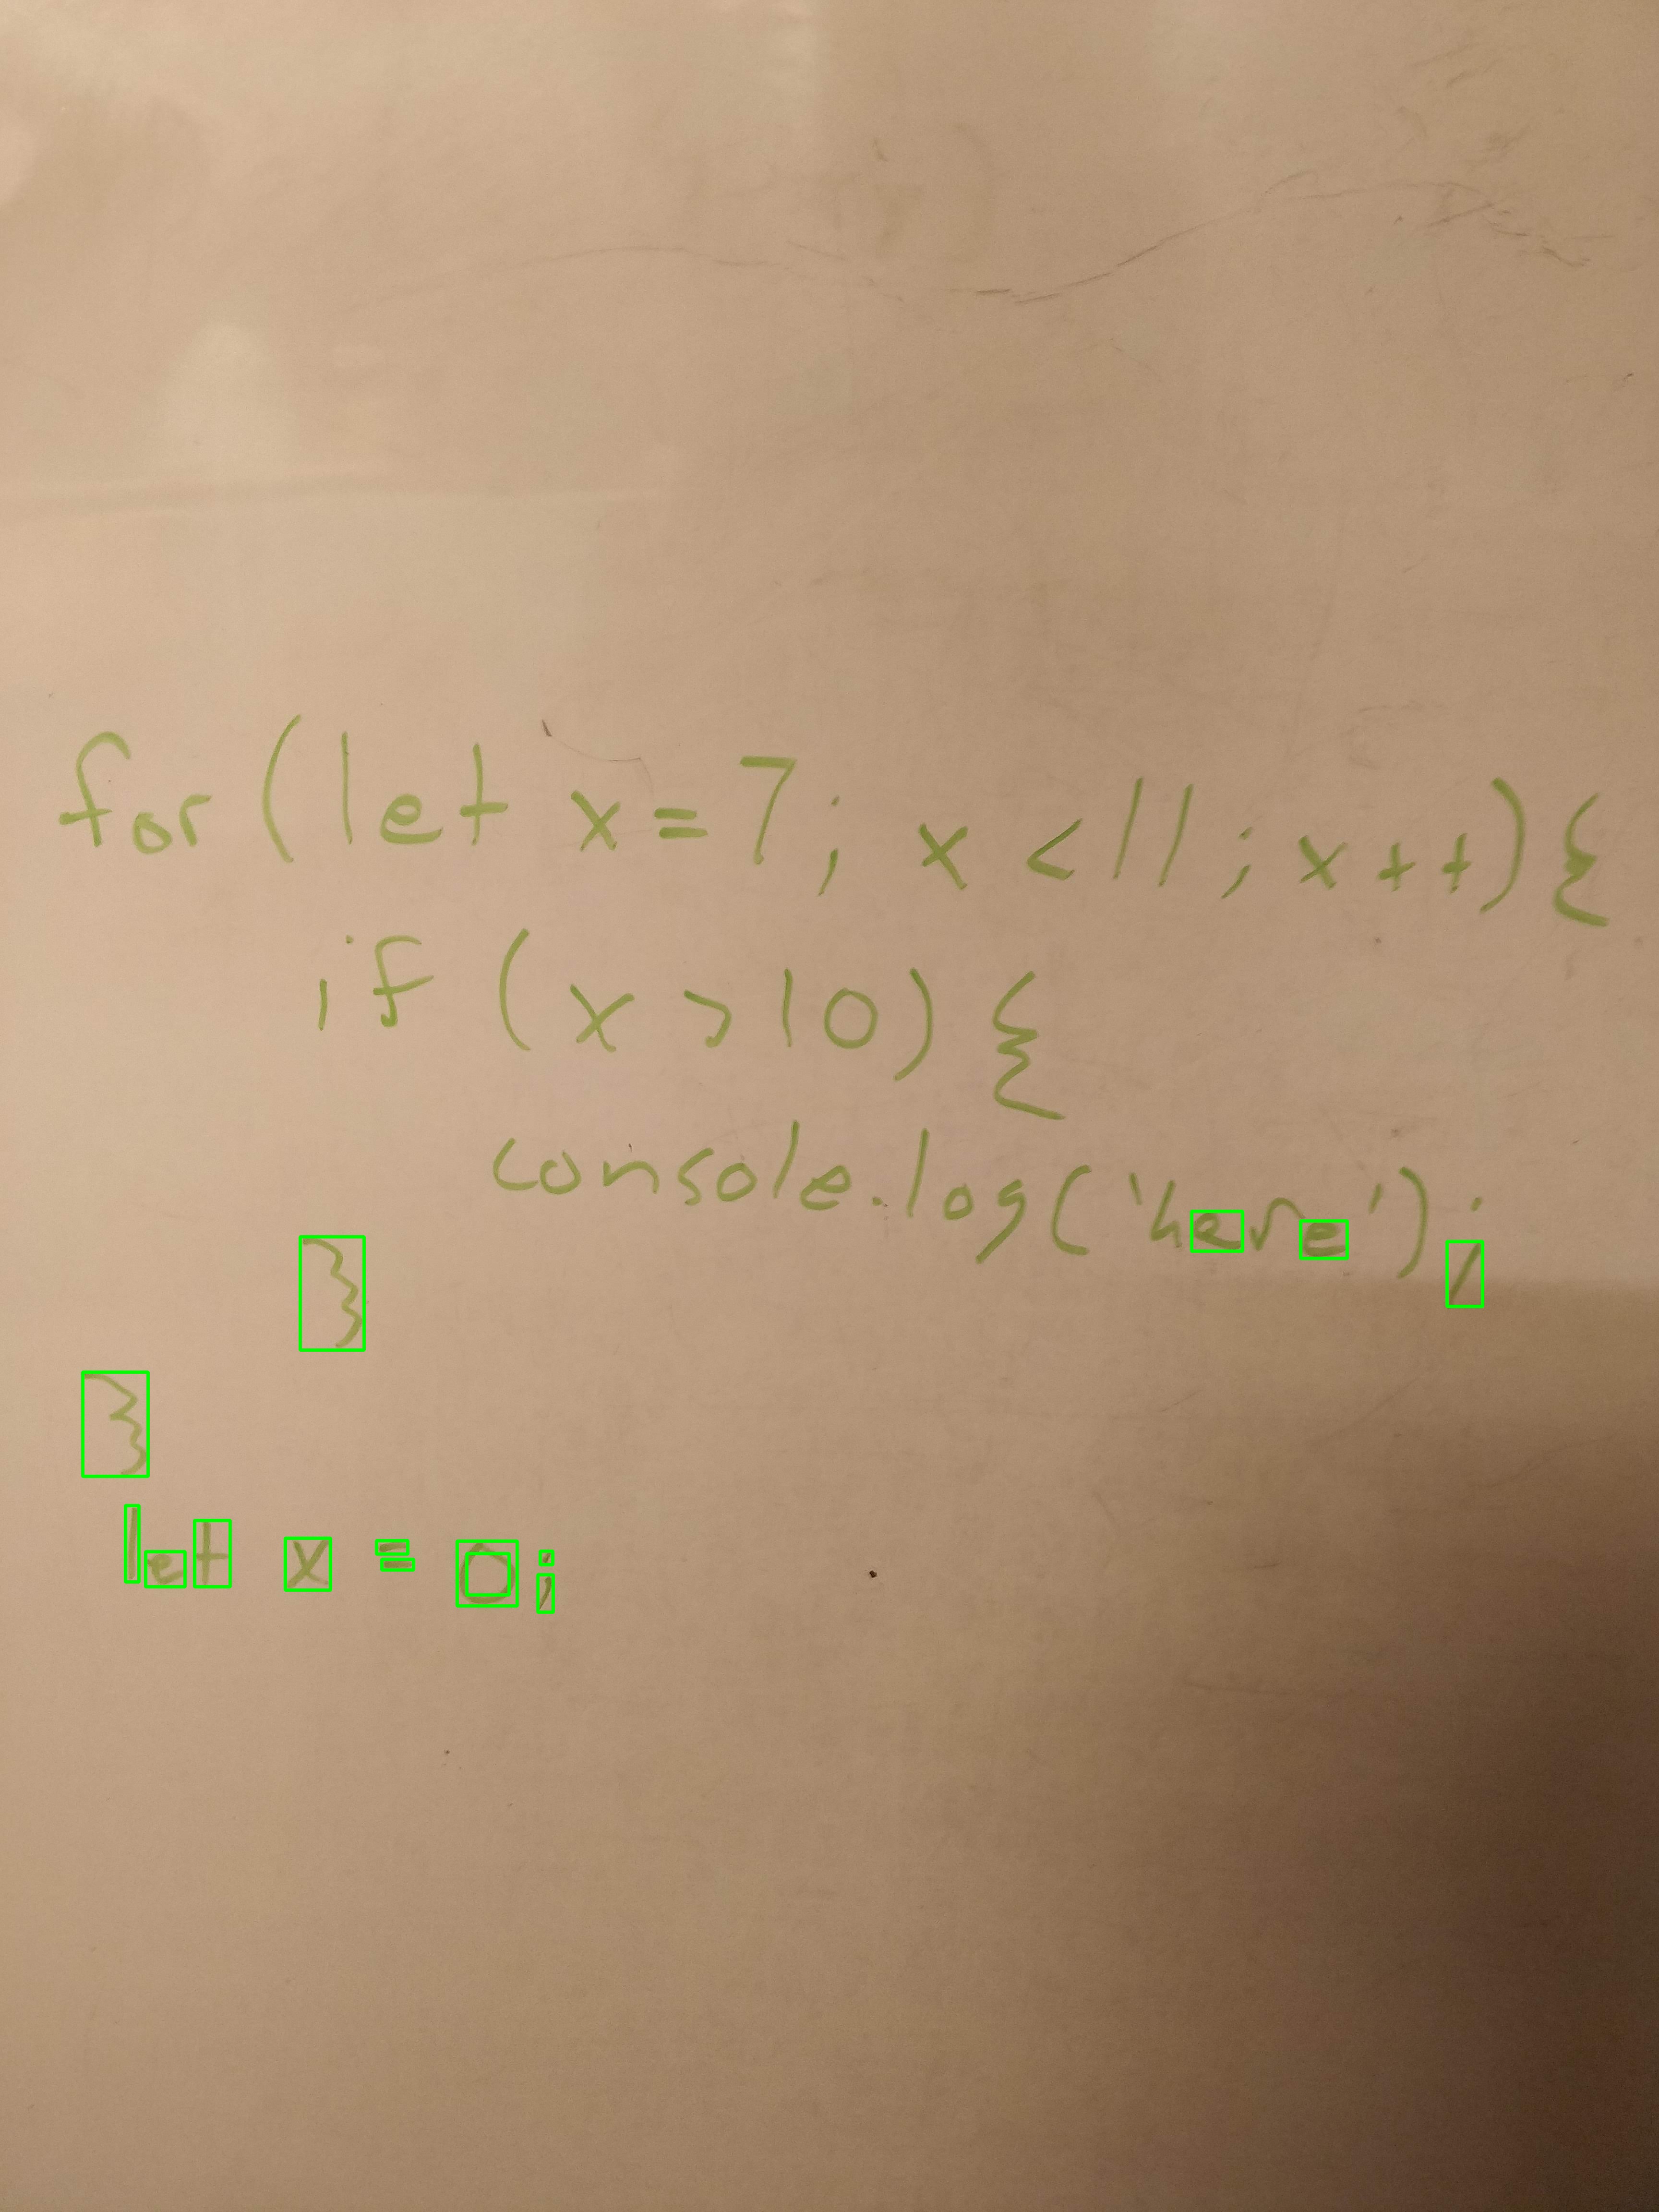 for (let x = 7; x < 11; x++) {
if (x > 10) {
console.log('here');
}
}
let x = 0;